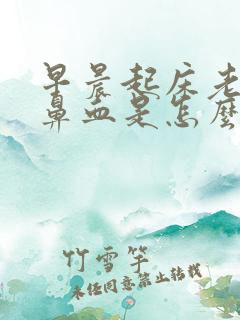 早晨起床老
鼻血是怎麽
竹雪竽
未经同意禁止转载